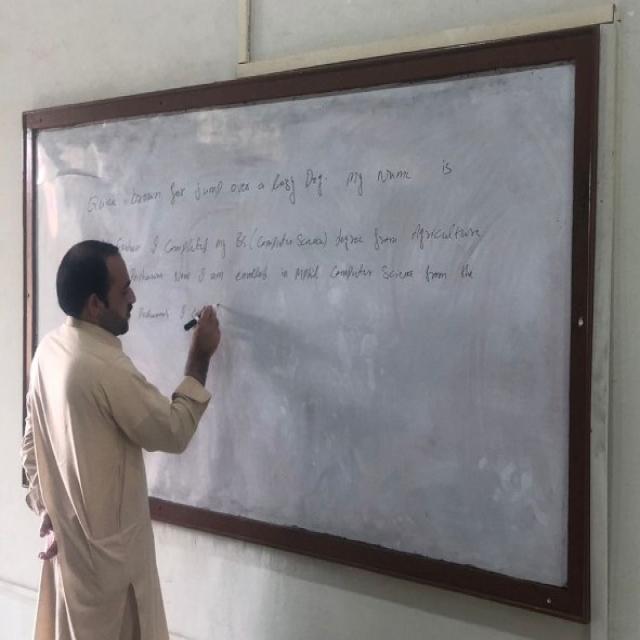 brown fox Jump over a lazy Dog. My Name is
I Completed my BS (Computer Science) degree from Agriculture
Now I am enrolled in Mphil Computer Science from the
I